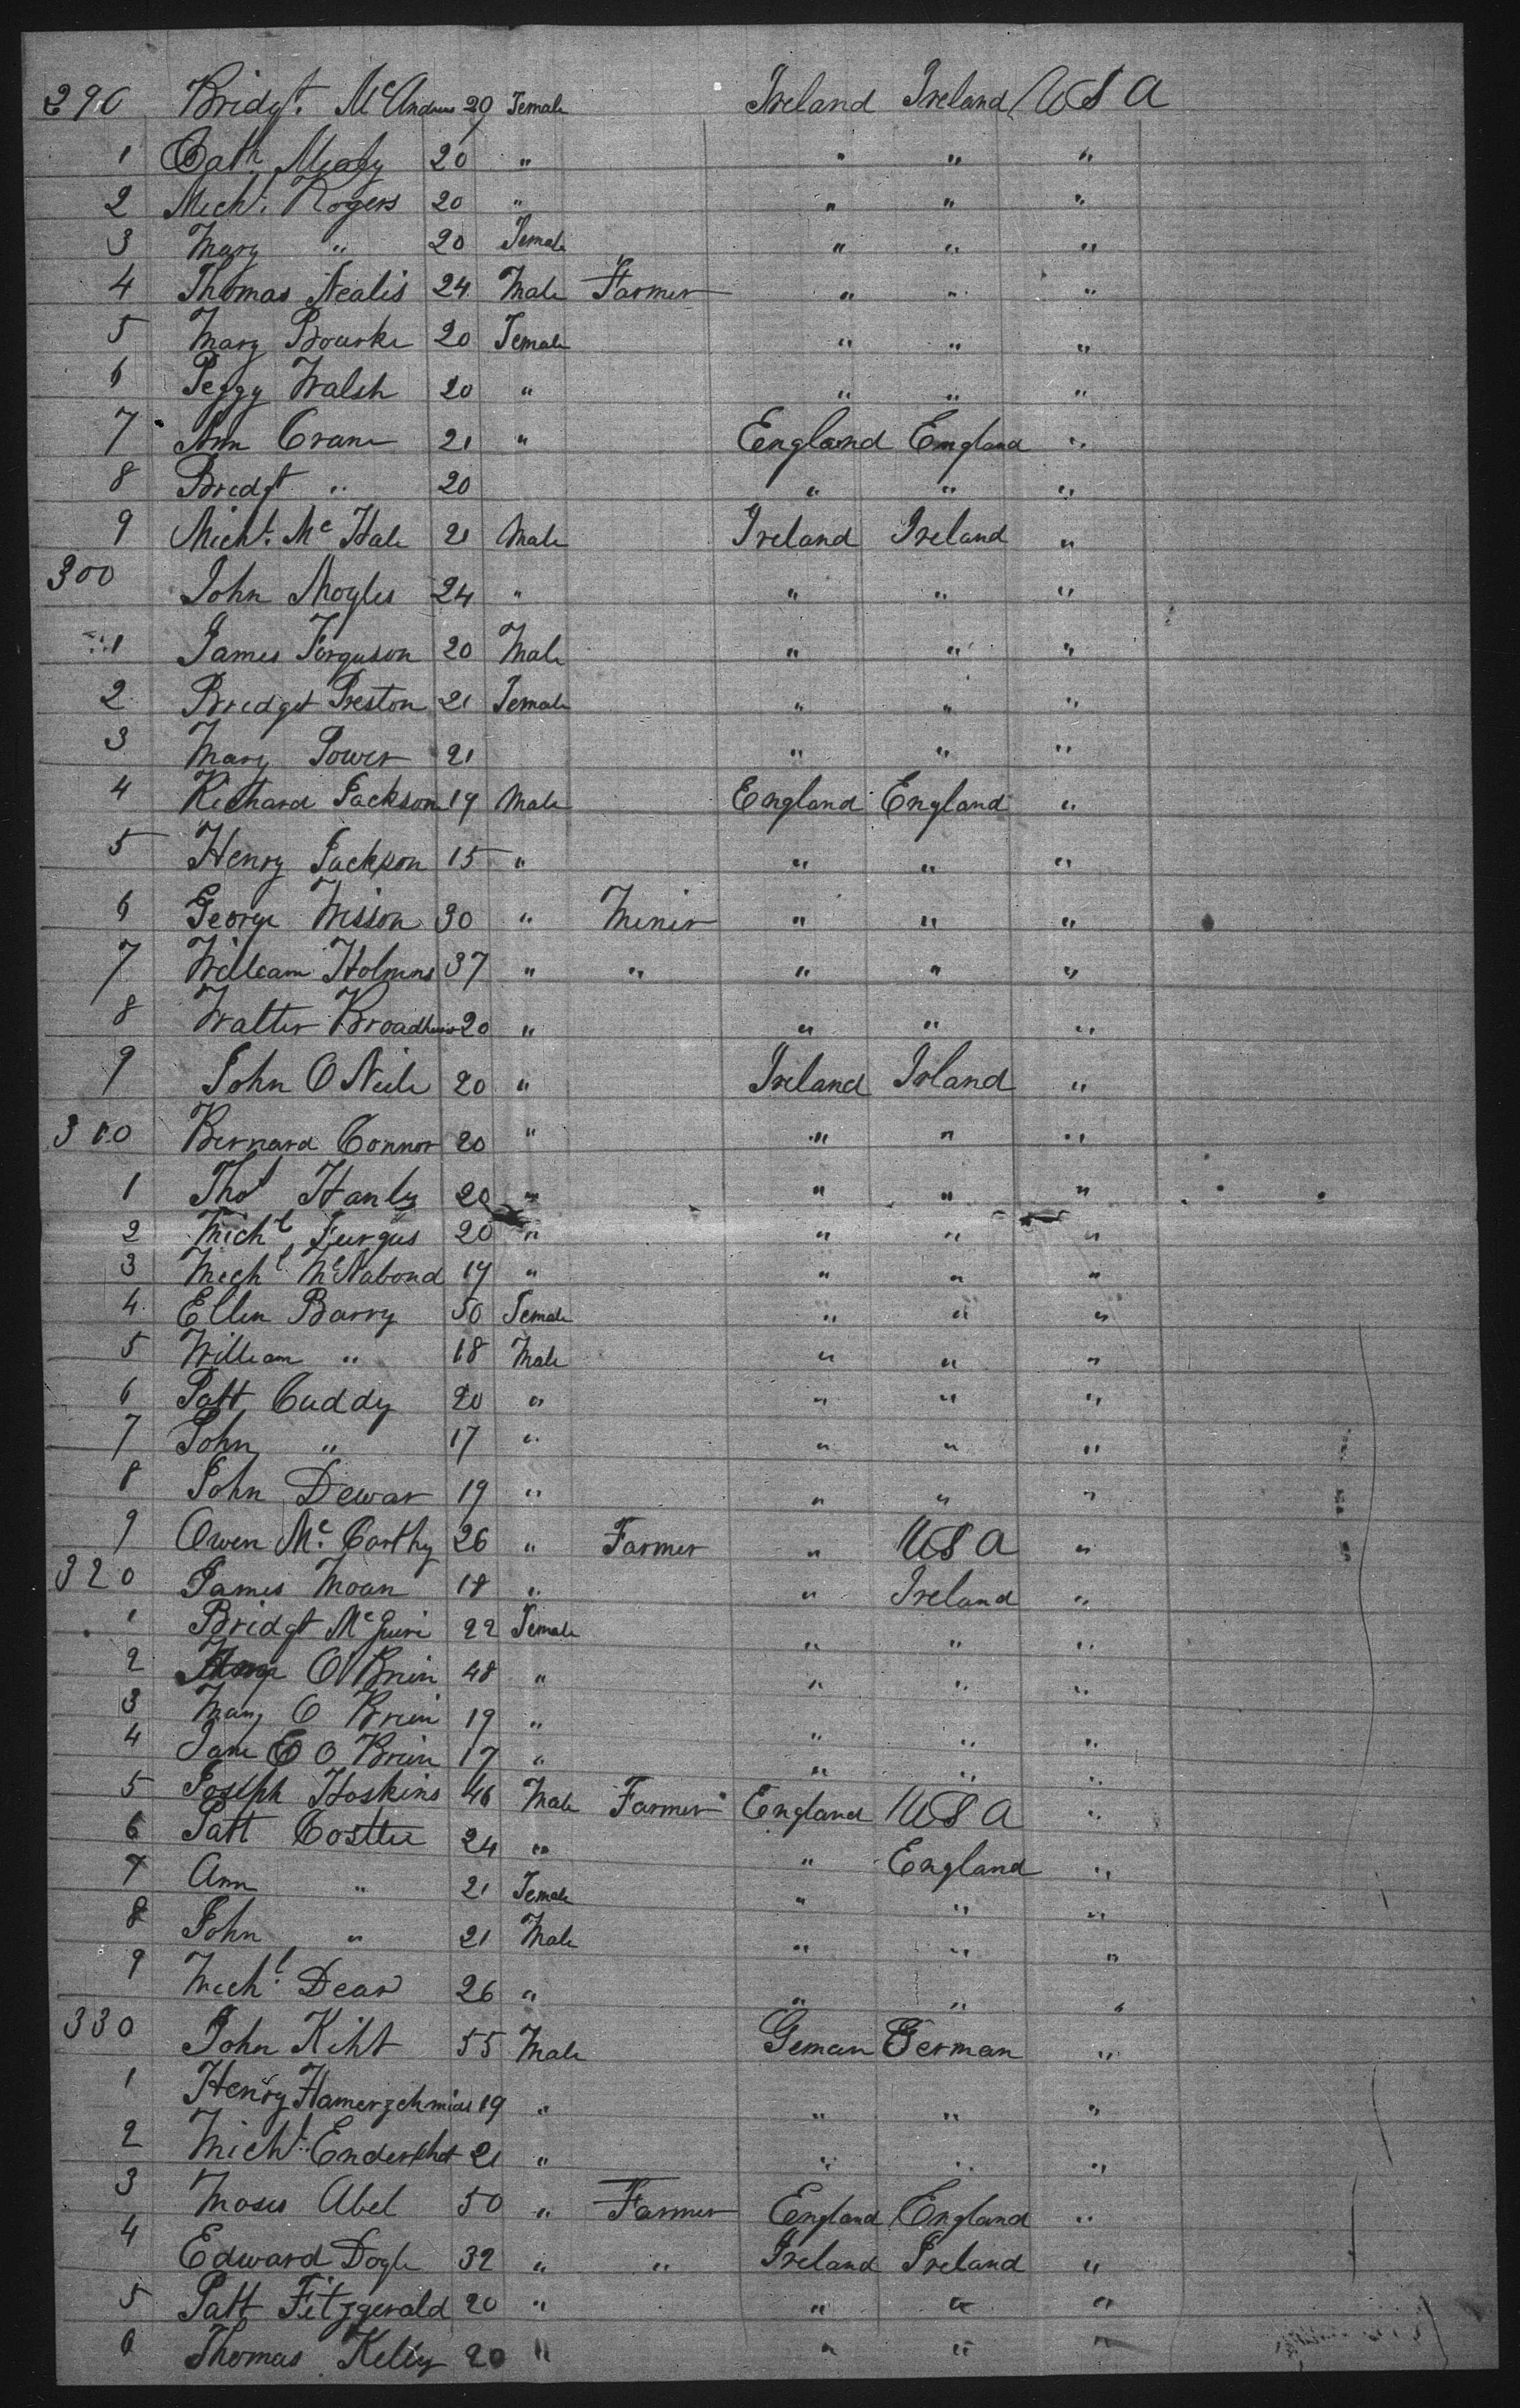 290 Bridgt. McAndrew 29 Female Ireland Ireland U S A
1 Cath 20 " " " "
2 Michl. Rogers 20 " " " "
3 Mary " 20 Female " " "
4 Thomas Nealis 24 Male Farmer " " "
5 Mary Bourke 20 Female " " "
6 Peggy Walsh 20 " " " "
7 Ann Crane 21 " England England "
8 Bridgt " 20 " " "
9 Michl. Mc Hale 21 Male Ireland Ireland "
300 John Moyles 24 " " " "
1 James Ferguson 20 Male " " "
2 Bridget Preston 21 Female " " "
3 Mary Power 21 " " "
4 Richard Jackson 19 Male England England "
5 Henry Jackson 15 " " " "
6 George Wisson 30 " Miner " " "
7 William Holmns 37 " " " " "
8 Walter 20 " " " "
9 John O Neile 20 " Ireland Irland "
310 Bernard Connor 20 " " " "
1 Thos Hanly 20 " " " "
2 Michl Furgus 20 " " " "
3 Michl McNabond 19 " " " "
4 Ellen Barry 50 Female " " "
5 William " 18 Male " " "
6 Patt Cuddy 20 " " " "
7 John " 17 " " " "
8 John Dewar 19 " " " "
9 Owen Mc. Carthy 26 " Farmer " U S A "
320 James Moan 18 " " Ireland "
1 Bridgt McGuire 22 Female " " "
2 O Brien 48 " " " "
3 Mary O Brien 19 " " " "
4 Jane E O Brien 17 " " " "
5 Joseph Hoskins 46 Male Farmer England U S A "
6 Patt Costlie 24 " " England "
7 Ann " 21 Female " " "
8 John " 21 Male " " "
9 Michl. Dear 26 " " " "
330 John Kiht 55 Male Geman German "
1 Henry Hamerzchmidt 19 " " " "
2 Michl. 21 " " " "
3 Moses Abel 50 " Farmer England England "
4 Edward Dogle 32 " " Ireland Ireland "
5 Patt Fitzgerald 20 " " " "
6 Thomas Kelly 20 " " " "